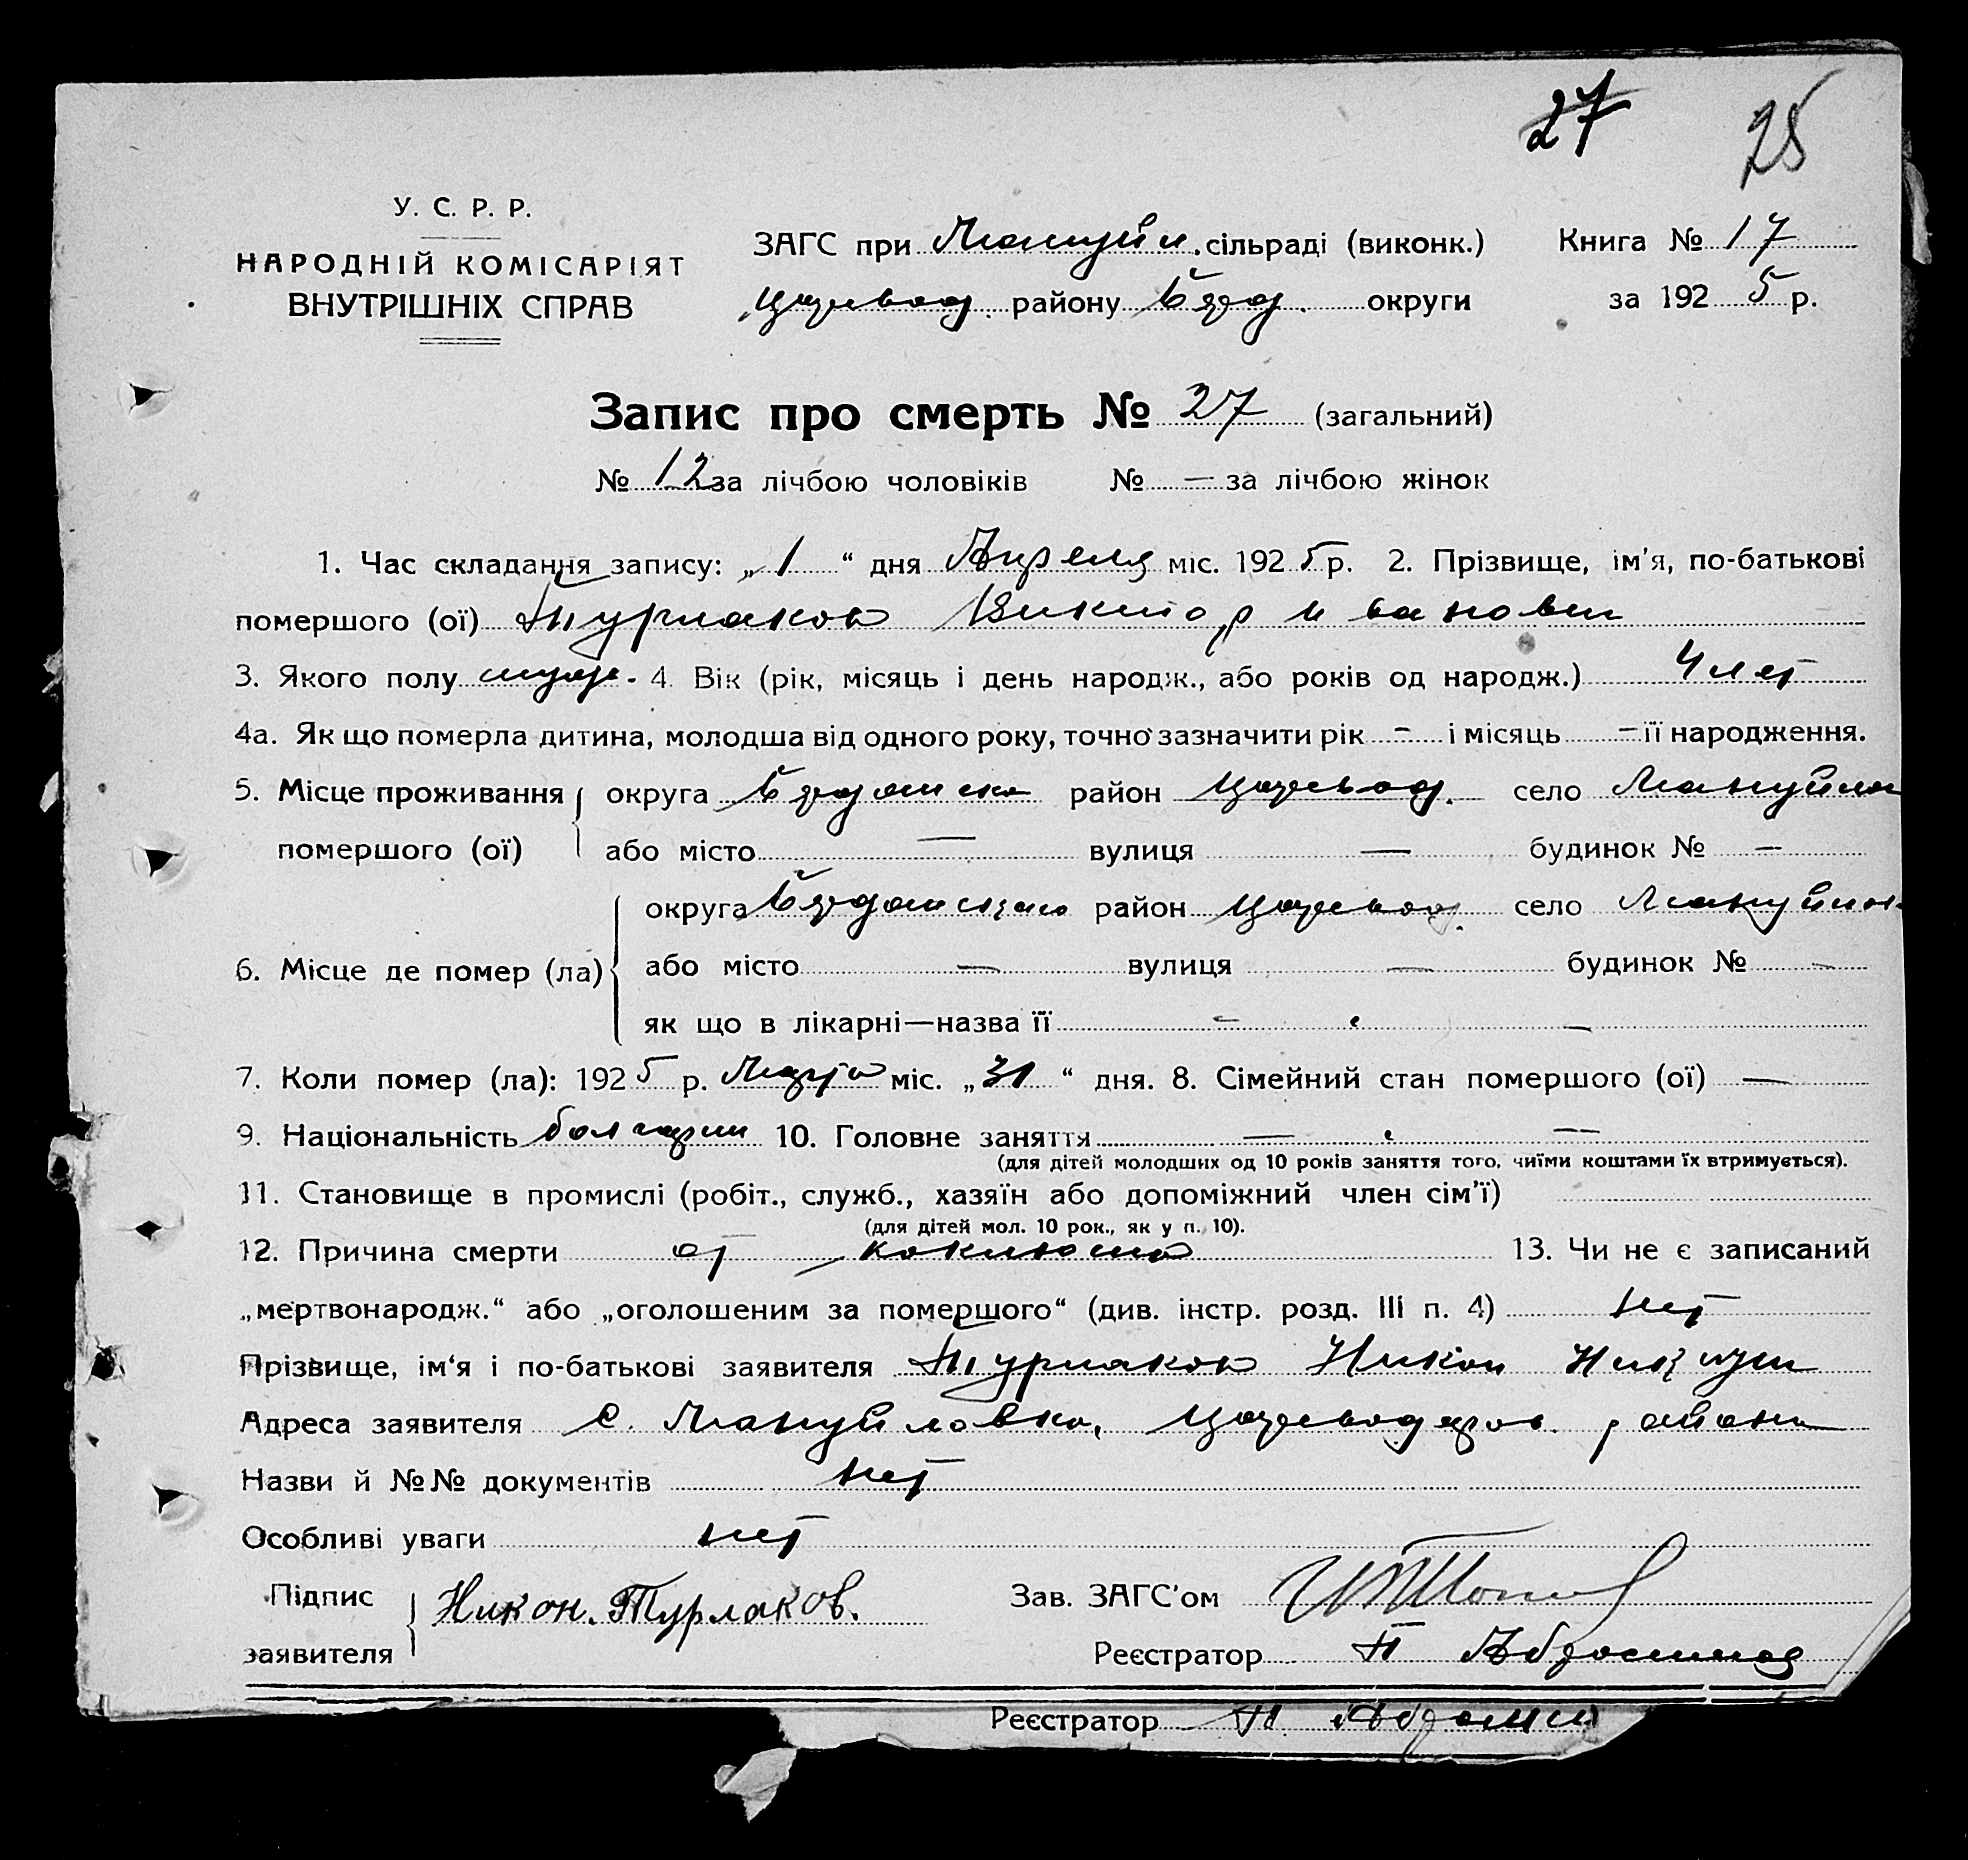 27 25
У. С. Р. Р.
НАРОДНІЙ КОМІСАРІЯТ
ВНУТРІШНІХ СПРАВ
ЗАГС при Мануйл. сільраді (виконк.) Книга № 17
Царевод. району Бердянс. округи за 1925 р.
Запис про смерть № 27 (загальний)
№ 12 за лічбою чоловіків № — за лічбою жінок
1. Час складання запису: „1“ дня Апреля міс. 1925 р. 2. Прізвище, ім'я, по-батькові
помершого (ої) Турлаков Виктор Иванови
3. Якого полу муж. 4. Вік (рік, місяць і день народж., або років од народж.) 4 лет
4а. Як що померла дитина, молодша від одного року, точно зазначити рік – і місяць – її народження.
5. Місце проживання помершого (ої) округа район Царевод. село Мануйлов
або місто — вулиця — будинок № —
6. Місце де помер (ла) округа район Царевод. село Мануйлов
або місто — вулиця — будинок № –
як що в лікарні—назва її — —
7. Коли помер (ла): 1925 р. Марта міс. „31“ дня. 8. Сімейний стан помершого (ої) —
9. Національність болгарин 10. Головне заняття — —
(для дітей молодших од 10 років заняття того, чиїми коштами їх втримується).
11. Становище в промислі (робіт., служб., хазяїн або допоміжний член сім'ї)
(для дітей мол. 10 рок., як у п. 10).
12. Причина смерти от коклюша 13. Чи не є записаний
„мертвонародж.“ або „оголошеним за помершого“ (див. інстр. розд. III п. 4) нет
Прізвище, ім'я і по-батькові заявителя Турлаков Никон
Адреса заявителя с. Мануйловка, района
Назви й №№ документів нет
Особливі уваги нет
Підпис заявителя Никон. Турлаков. Зав. ЗАГС'ом
Реєстратор П
Реєстратор П